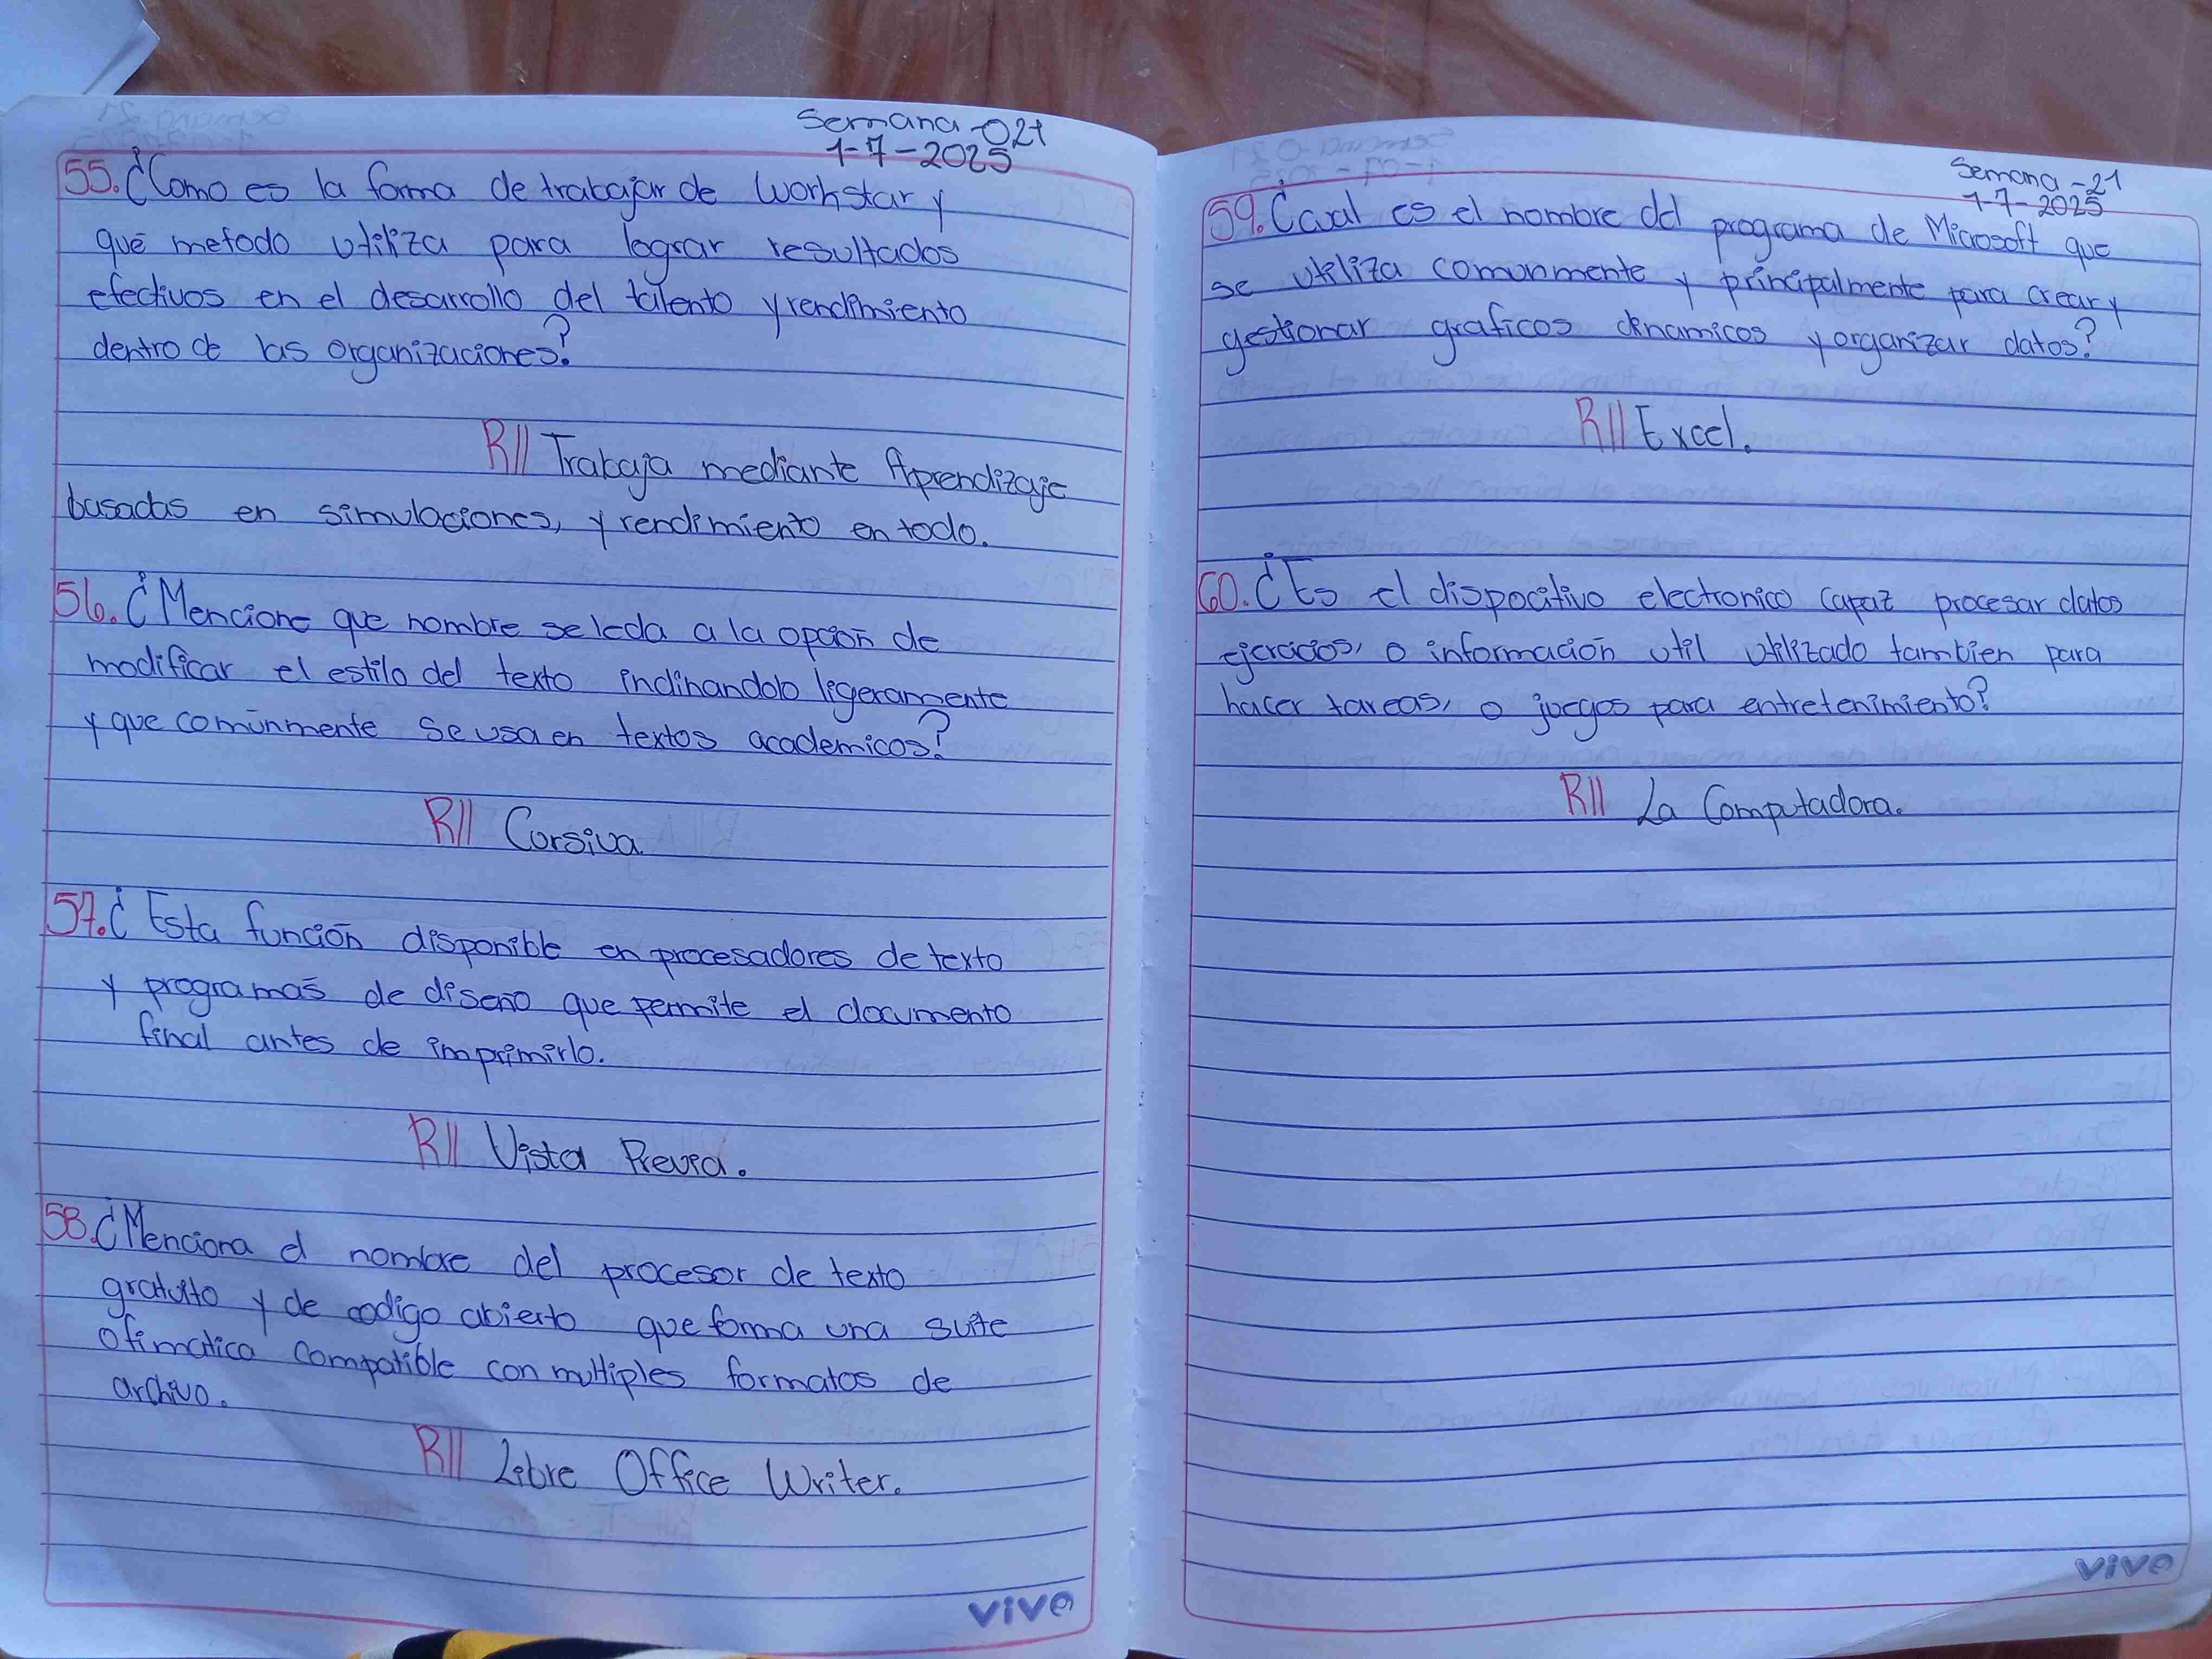 Semana -021
1-7-2025
55. ¿Como es la forma de trabajar de Workstar y
que metodo utiliza para lograr resultados
efectivos en el desarrollo del talento y rendimiento
dentro de las organizaciones?
R// Trabaja mediante Aprendizaje
basadas en simulaciones, y rendimiento en todo.
56. ¿Mencione que nombre se le da a la opción de
modificar el estilo del texto inclinandolo ligeramente
y que comúnmente se usa en textos academicos?
R// Cursiva
57. ¿Esta función disponible en procesadores de texto
y programas de diseño que permite el documento
final antes de imprimirlo.
R// Vista Previa.
58. ¿Menciona el nombre del procesor de texto
gratuito y de codigo abierto que forma una suite
ofimatica compatible con multiples formatos de
archivo.
R// Libre Office Writer.
vive
Semana -21
1-7-2025
59. ¿Cual es el nombre del programa de Microsoft que
se utiliza comunmente y principalmente para crear y
gestionar graficos dinamicos y organizar datos?
R// Excel.
60. ¿Es el dispocitivo electronico capaz procesar datos
ejercicios, o información util utilizado tambien para
hacer tareas, o juegos para entretenimiento?
R// La Computadora.
vive